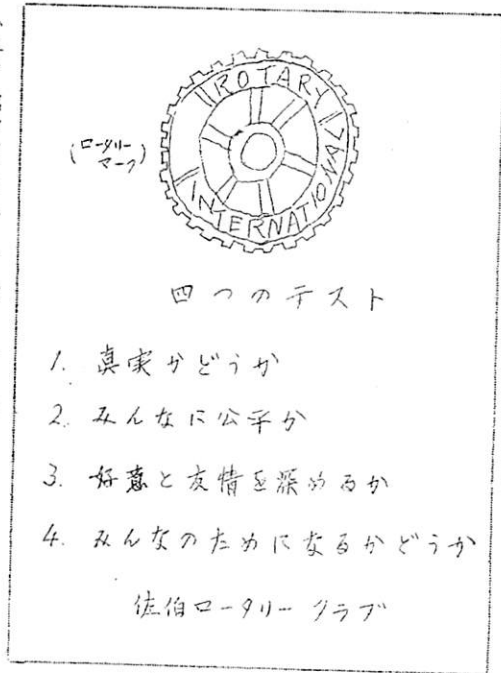 ROTARY
INTERNATIONAL
(ロータリー
マーク)
四つのテスト
1. 真実かどうか
2. みんなに公平か
3. 好意と友情を深めるか
4. みんなのためになるかどうか
佐伯ロータリークラブ